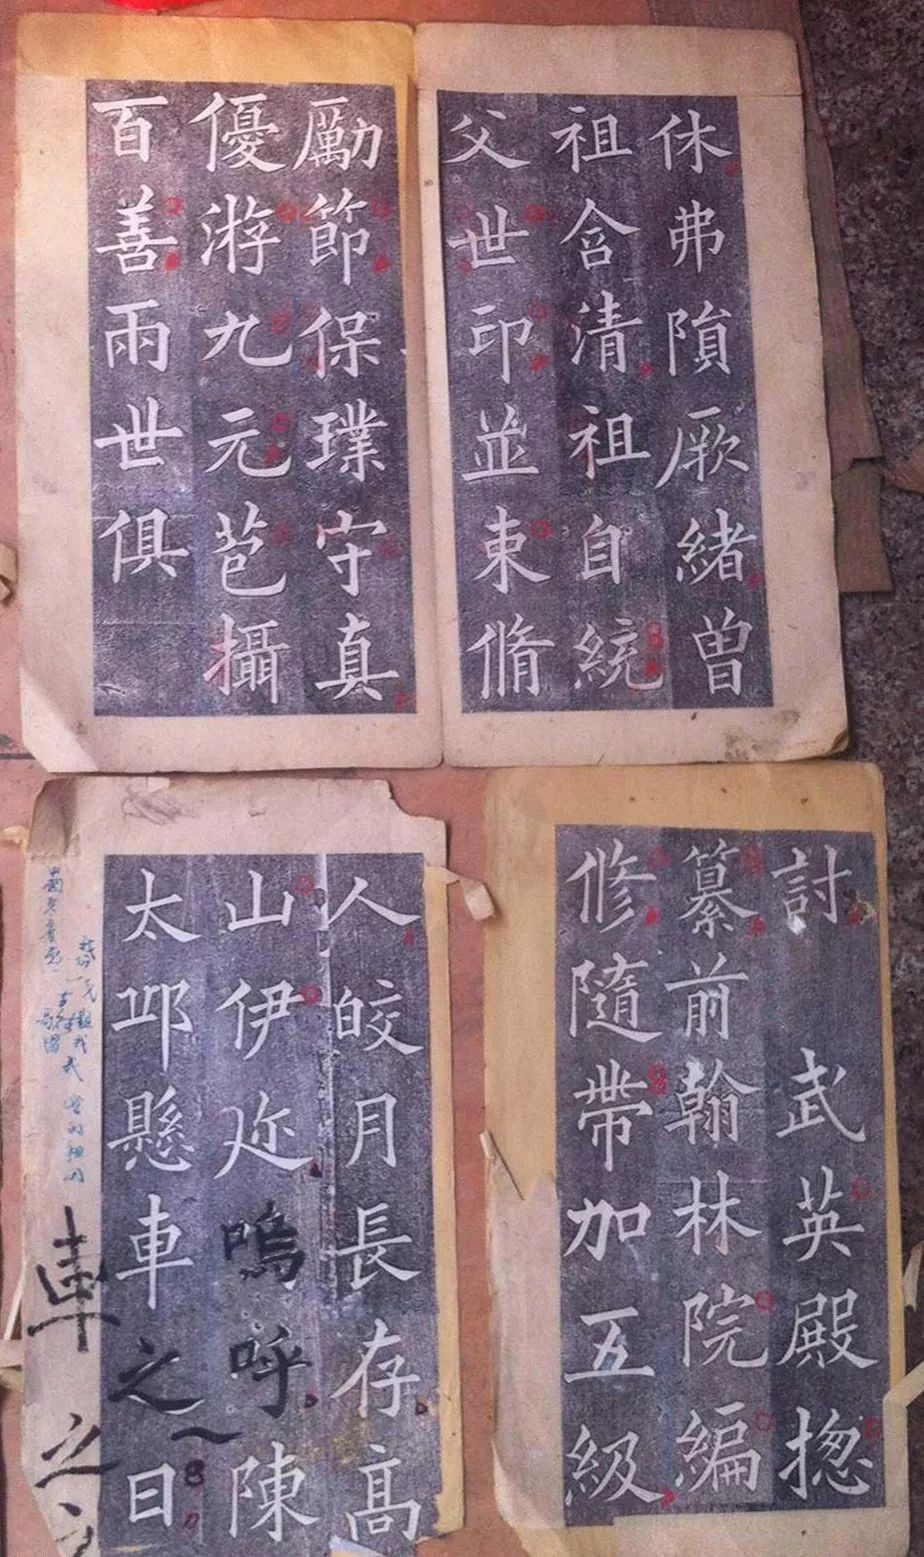 休弗隕厥緒曾
祖含清祖自統
父世印並東脩
勵節保璞守真
優游九元苞攝
百善兩世俱
討 武英殿揔
纂前翰林院編
修隨帶加五級
人皎月長存高
山伊迩嗚呼陳
太邱懸車之日
車
之